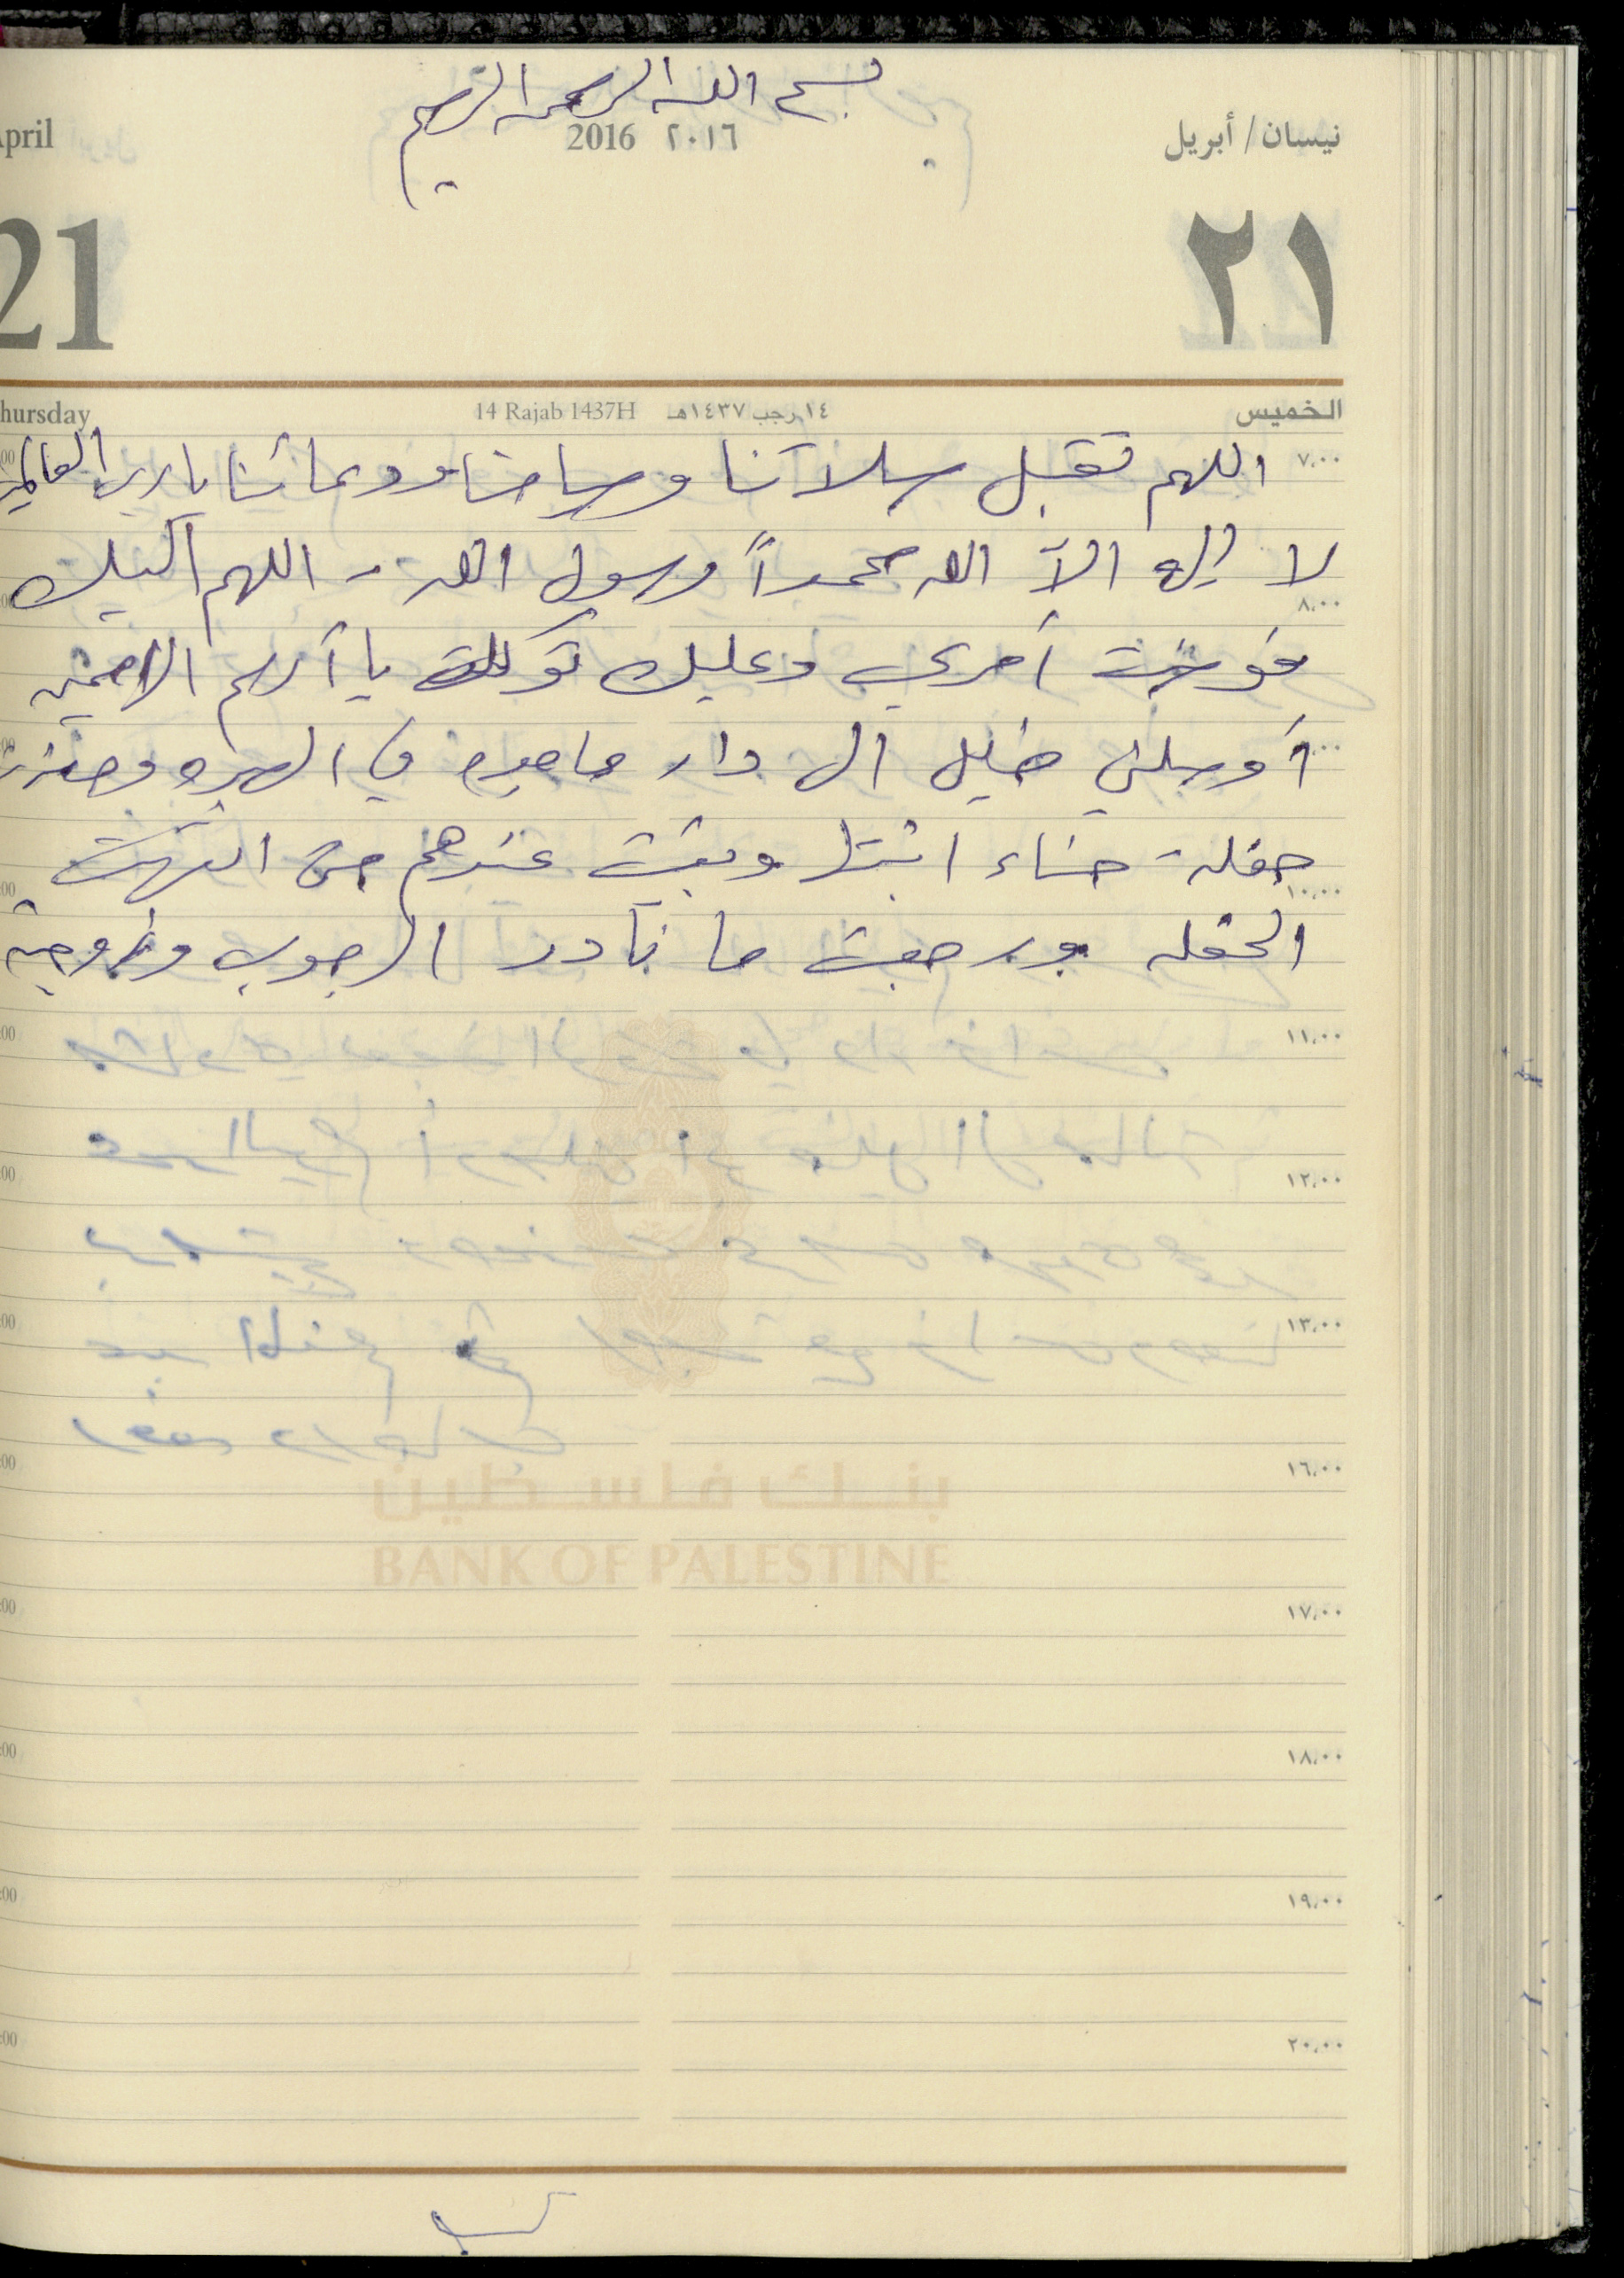 بسم الله الرحمن الرحيم
April 2016 ٢٠١٦ نيسان / أبريل
21 ٢١
Thursday 14 Rajab 1437H ١٤ رجب ١٤٣٧هـ الخميس
٧,٠٠ اللهم تقبل صلاتنا وصيامنا ودعائنا يا رب العالمين
لا إله الآ الله محمداً رسول الله - اللهم اليك
٨,٠٠
فوضت أمري وعليك توكلت يا أرحم الراحمين
أوصلني خليل الى دار ماجده في البيره وحضرت
حفلة حناء ابنتها وبقيت عندهم حتى انتهت
١٠,٠٠
الحفله ورجعت مع نادر الرجوب وزوجته
١١,٠٠
١٢,٠٠
١٣,٠٠
١٦,٠٠
بنك فلسطين
BANK OF PALESTINE
١٧,٠٠
١٨,٠٠
١٩,٠٠
٢٠,٠٠